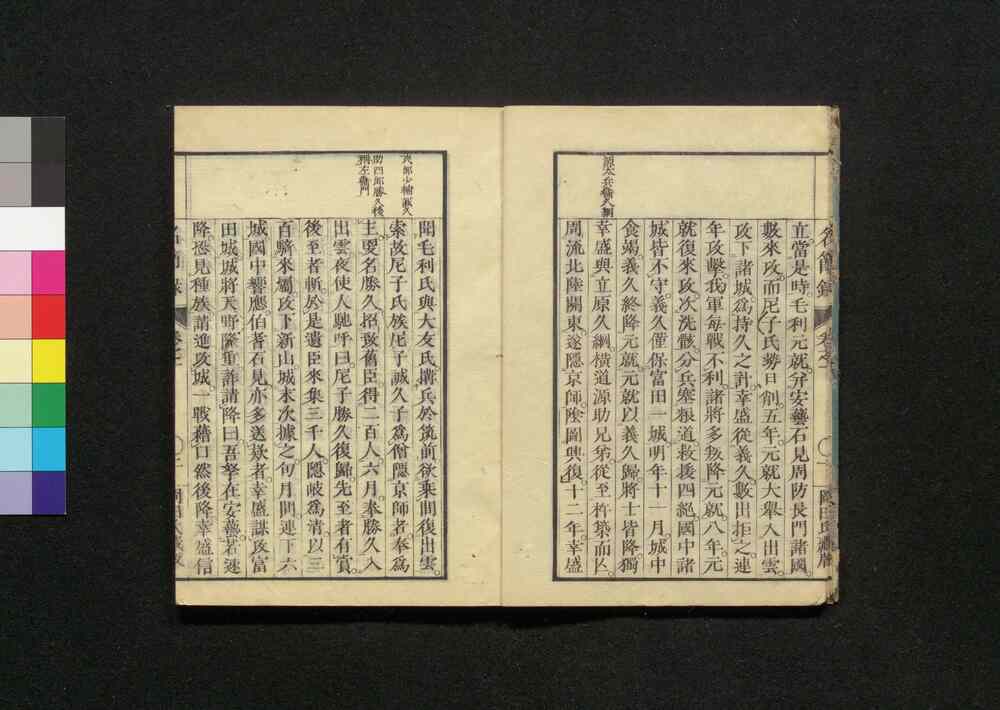 立當是時毛利元就、并安藝石見周防長門諸國。
數來攻。而尼子氏勢日削。五年。元就大擧入出雲。
攻下諸城。爲持久之計。幸盛從義久數出拒之。連
年攻擊。我軍每戰不利。諸將多叛降元就。八年。元
就復來攻。次洗骸。分兵塞粮道。救援四絕。國中諸
城皆不守。義久僅保富田一城。明年十一月。城中
食竭。義久終降元就。元就以義久歸。將士皆降。獨
幸盛與立原久綱橫道源助兄弟從至杵築而亾。
周流北陸關東。遂隱京師。陰圖興復。十二年。幸盛
源太兵衞久綱
聞毛利氏與大友氏搆兵於筑前。欲乘間復出雲。
索故尼子氏族尼子誠久子爲僧隱京師者。奉爲
主。更名勝久。招致舊臣。得二百人。六月。奉勝久入
出雲。夜使人馳呼曰。尼子勝久復歸。先至者有賞。
後至者斬。於是遺臣來集三千人。隱岐爲淸。以三
百騎來屬。攻下新山城末次據之。旬月間。連下六
城。國中響應。伯耆石見亦多送欵者。幸盛謀攻富
田城。城將天野隆重詐請降曰。吾孥在安藝。若速
降。恐見種族。請進攻城。一戰藉口。然後降。幸盛信
式部少輔誠久
助四郎勝久